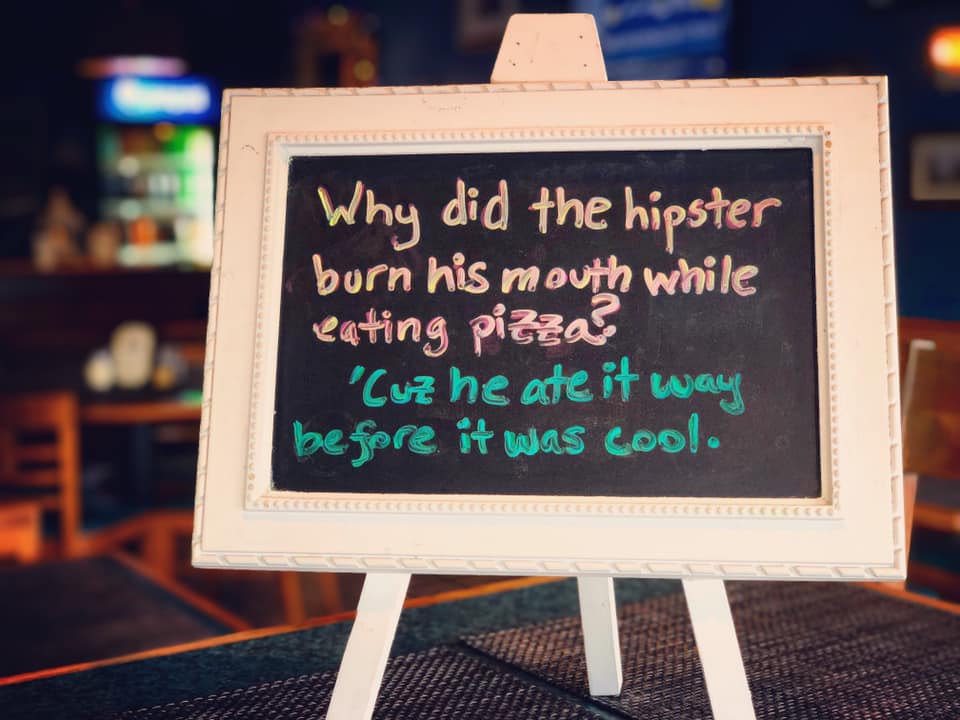 Why did the hipster
burn his mouth while
eating pizza?
'Cuz he ate it way
before it was cool.